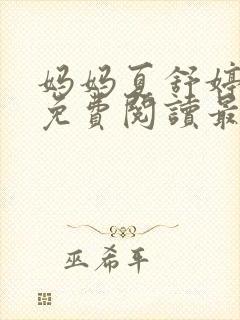 妈妈夏舒婷
免費閱讀最
巫希平